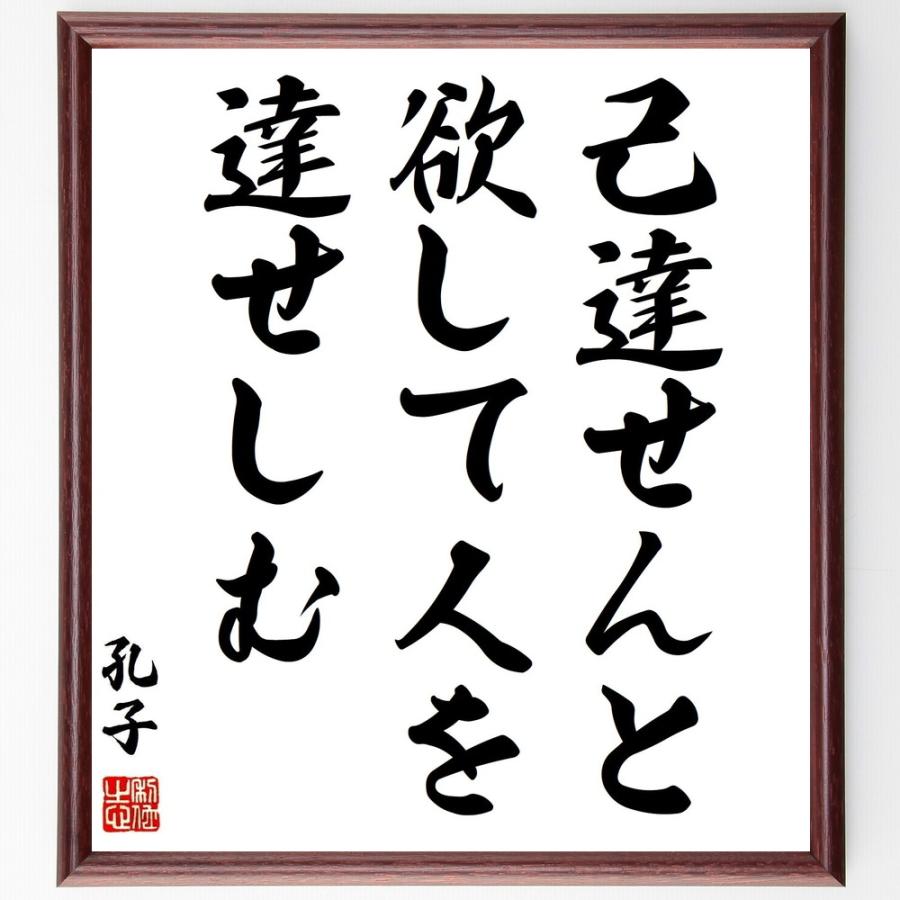 己達せんと
欲して人を
達せしむ
孔子